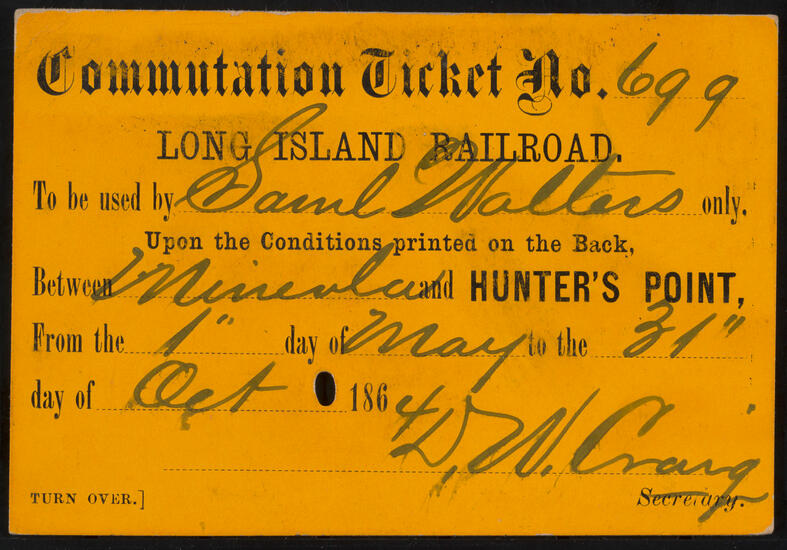 Commutation Ticket No. 699
LONG ISLAND RAILROAD.
To be used by Saml Walters only.
Upon the Conditions printed on the Back,
Between Mineola and HUNTER'S POINT,
From the 1" day of May to the 31"
day of Oct 1864
D. W. Craig
TURN OVER.] Secretary.